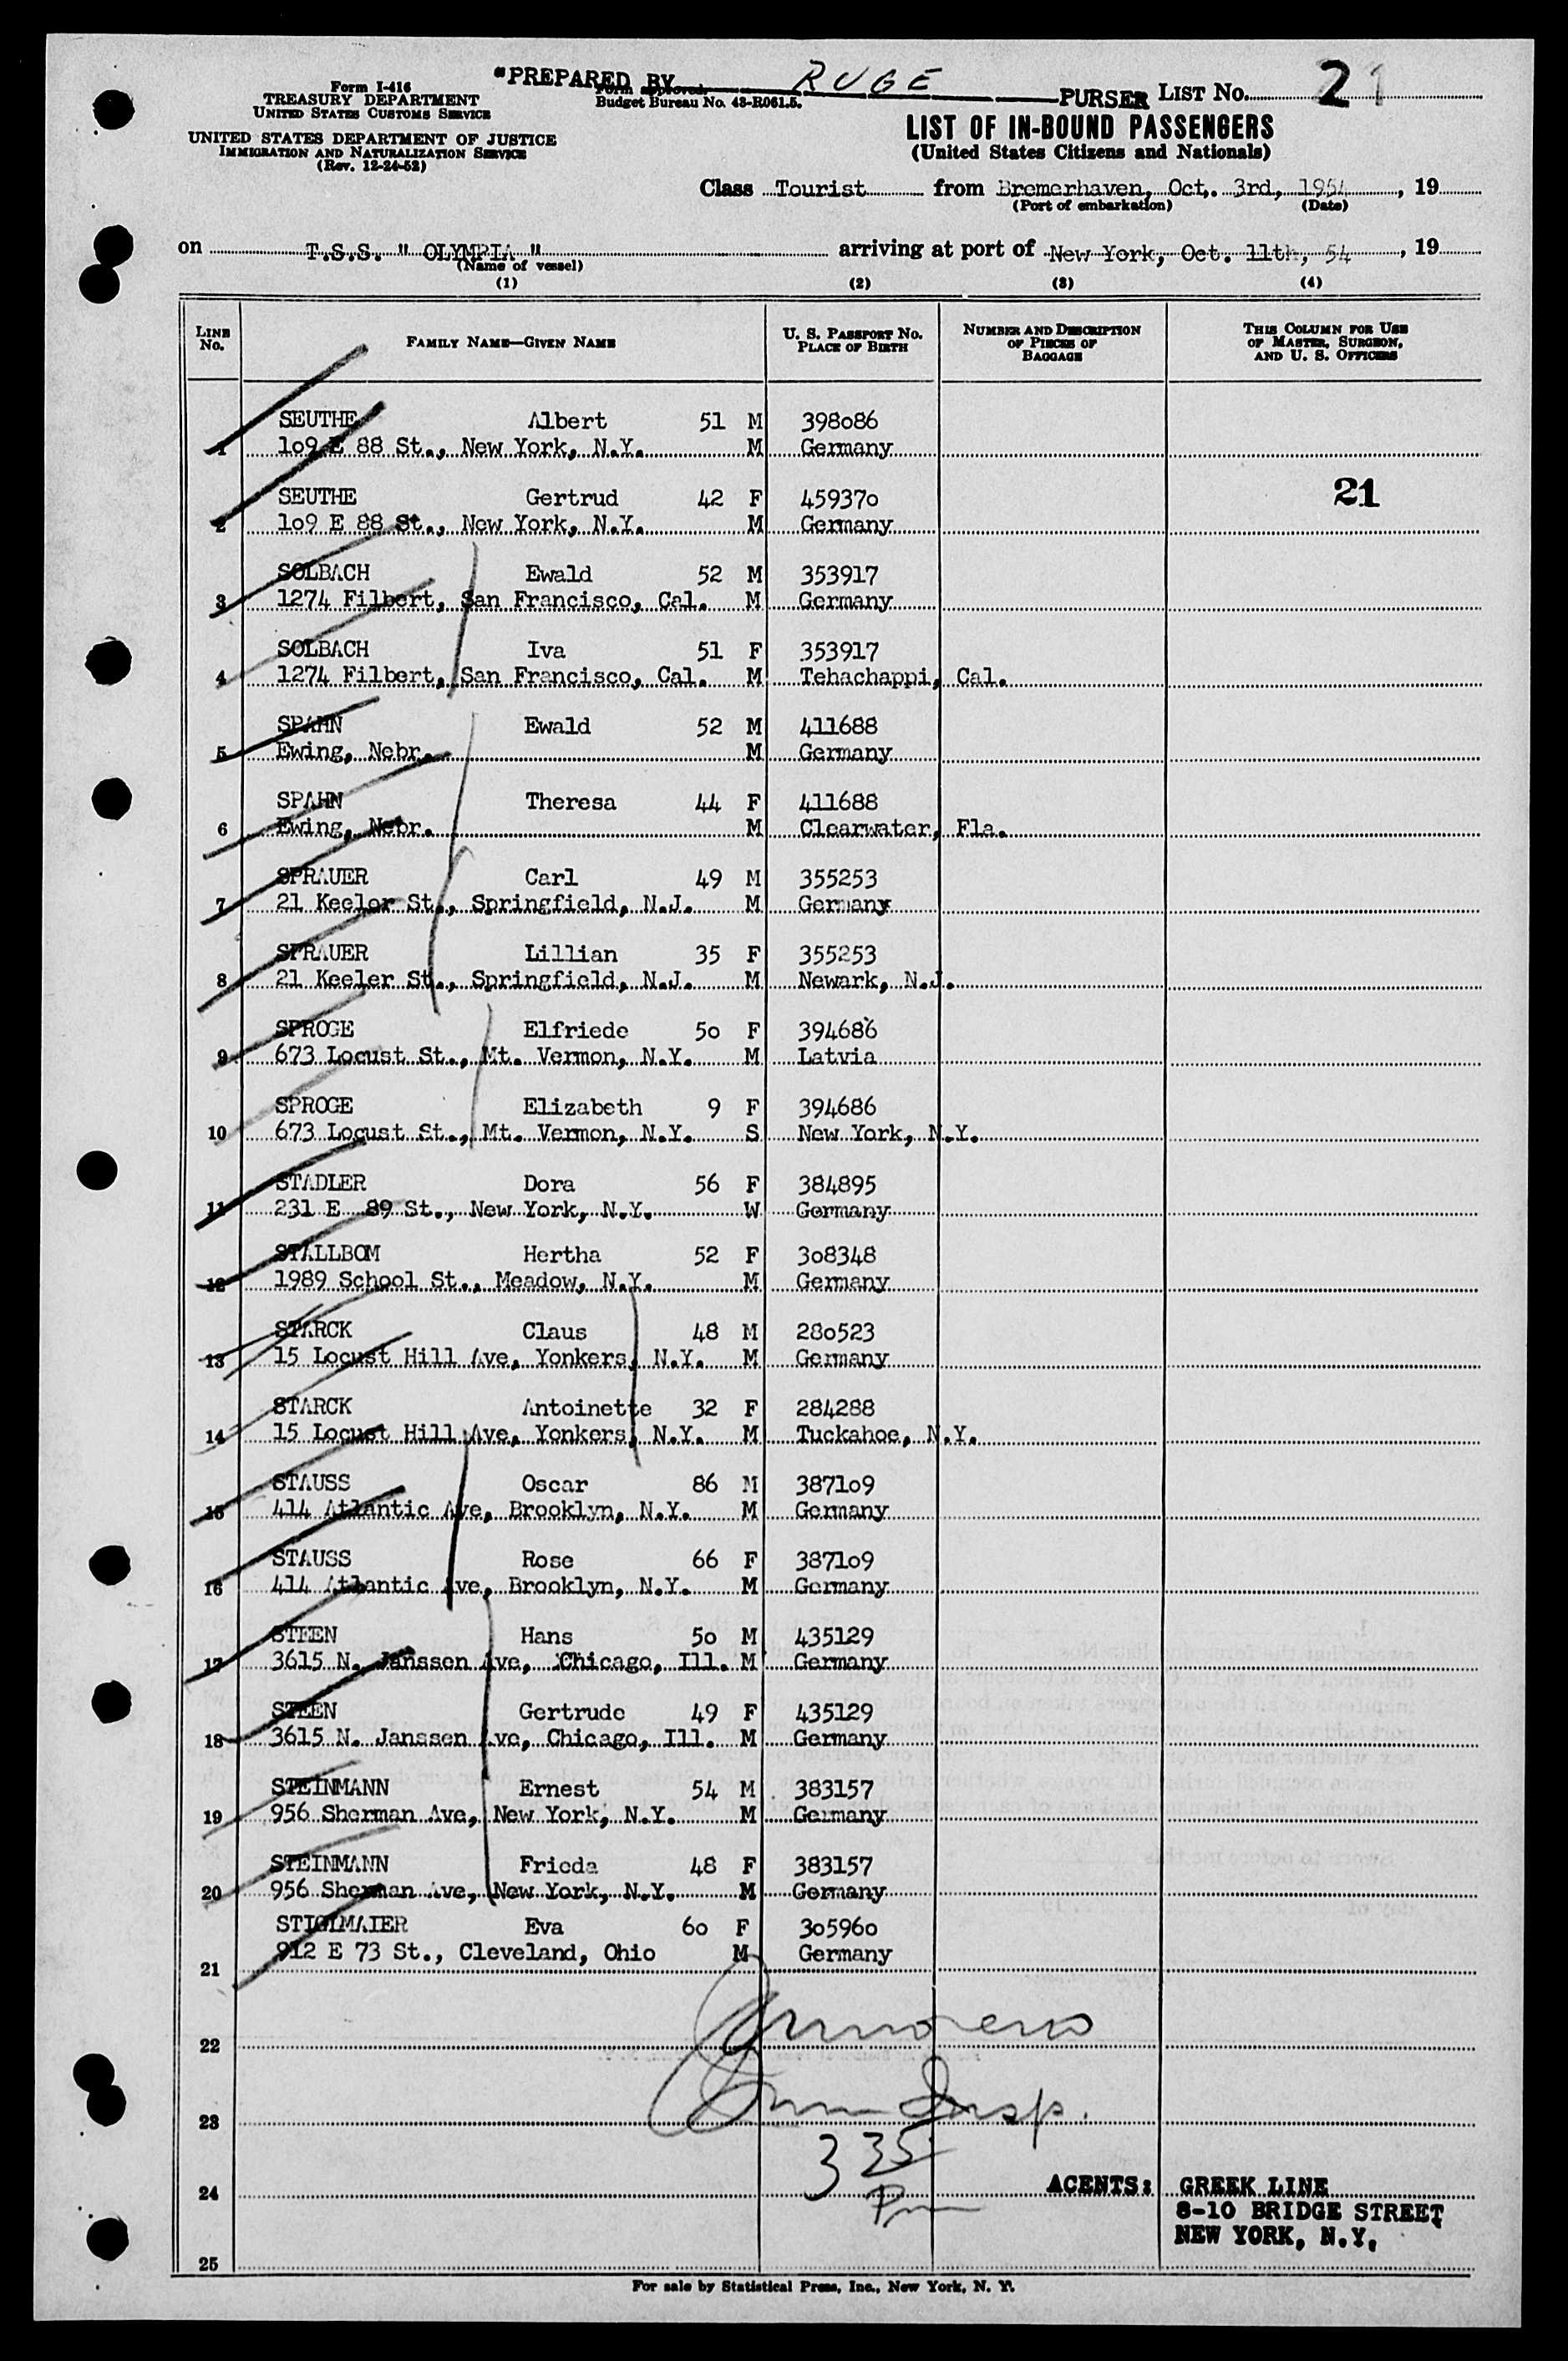 Form I-416
TREASURY DEPARTMENT
UNITED STATES CUSTOMS SERVICE
UNITED STATES DEPARTMENT OF JUSTICE
IMMIGRATION AND NATURALIZATION SERVICE
(Rev. 12-24-52)
"PREPARED BY RUGE PURSER LIST No. 21
Form approved.
Budget Bureau No. 43-R061.5.
LIST OF IN-BOUND PASSENGERS
(United States Citizens and Nationals)
Class Tourist from Bremerhaven, Oct. 3rd, 1954, 19
(Port of embarkation) (Date)
on T.S.S. " OLYMPIA " arriving at port of New York, Oct. 11th, 54, 19
(Name of vessel)
(1) (2) (3) (4)
LINE No. FAMILY NAME—GIVEN NAME U. S. PASSPORT No. PLACE OF BIRTH NUMBER AND DESCRIPTION OF PIECES OF BAGGAGE THIS COLUMN FOR USE OF MASTER, SURGEON, AND U. S. OFFICERS
SEUTHE Albert 51 M 398o86
1 1o9 E 88 St., New York, N.Y. M Germany
SEUTHE Gertrud 42 F 45937o 21
2 1o9 E 88 St., New York, N.Y. M Germany
SOLBACH Ewald 52 M 353917
3 1274 Filbert, San Francisco, Cal. M Germany
SOLBACH Iva 51 F 353917
4 1274 Filbert, San Francisco, Cal. M Tehachappi, Cal.
SPAHN Ewald 52 M 411688
5 Ewing, Nebr. M Germany
SPAHN Theresa 44 F 411688
6 Ewing, Nebr. M Clearwater, Fla.
SPRAUER Carl 49 M 355253
7 21 Keeler St., Springfield, N.J. M Germany
SPRAUER Lillian 35 F 355253
8 21 Keeler St., Springfield, N.J. M Newark, N.J.
SPROGE Elfriede 5o F 394686
9 673 Locust St., Mt. Vernon, N.Y. M Latvia
SPROGE Elizabeth 9 F 394686
10 673 Locust St., Mt. Vernon, N.Y. S New York, N.Y.
STADLER Dora 56 F 384895
11 231 E 89 St., New York, N.Y. W Germany
STALLBOM Hertha 52 F 3o8348
12 1989 School St., Meadow, N.Y. M Germany
STARCK Claus 48 M 28o523
13 15 Locust Hill Ave, Yonkers, N.Y. M Germany
STARCK Antoinette 32 F 284288
14 15 Locust Hill Ave, Yonkers, N.Y. M Tuckahoe, N.Y.
STAUSS Oscar 86 M 3871o9
15 414 Atlantic Ave, Brooklyn, N.Y. M Germany
STAUSS Rose 66 F 3871o9
16 414 Atlantic Ave, Brooklyn, N.Y. M Germany
STEEN Hans 5o M 435129
17 3615 N. Janssen Ave, Chicago, Ill. M Germany
STEEN Gertrude 49 F 435129
18 3615 N. Janssen Ave, Chicago, Ill. M Germany
STEINMANN Ernest 54 M 383157
19 956 Sherman Ave, New York, N.Y. M Germany
STEINMANN Frieda 48 F 383157
20 956 Sherman Ave, New York, N.Y. M Germany
STIGLMAIER Eva 6o F 3o596o
912 E 73 St., Cleveland, Ohio M Germany
21
22
23 Insp.
3 35
24 Pm
AGENTS: GREEK LINE
8-10 BRIDGE STREET
NEW YORK, N.Y.
25
For sale by Statistical Press, Inc., New York, N. Y.